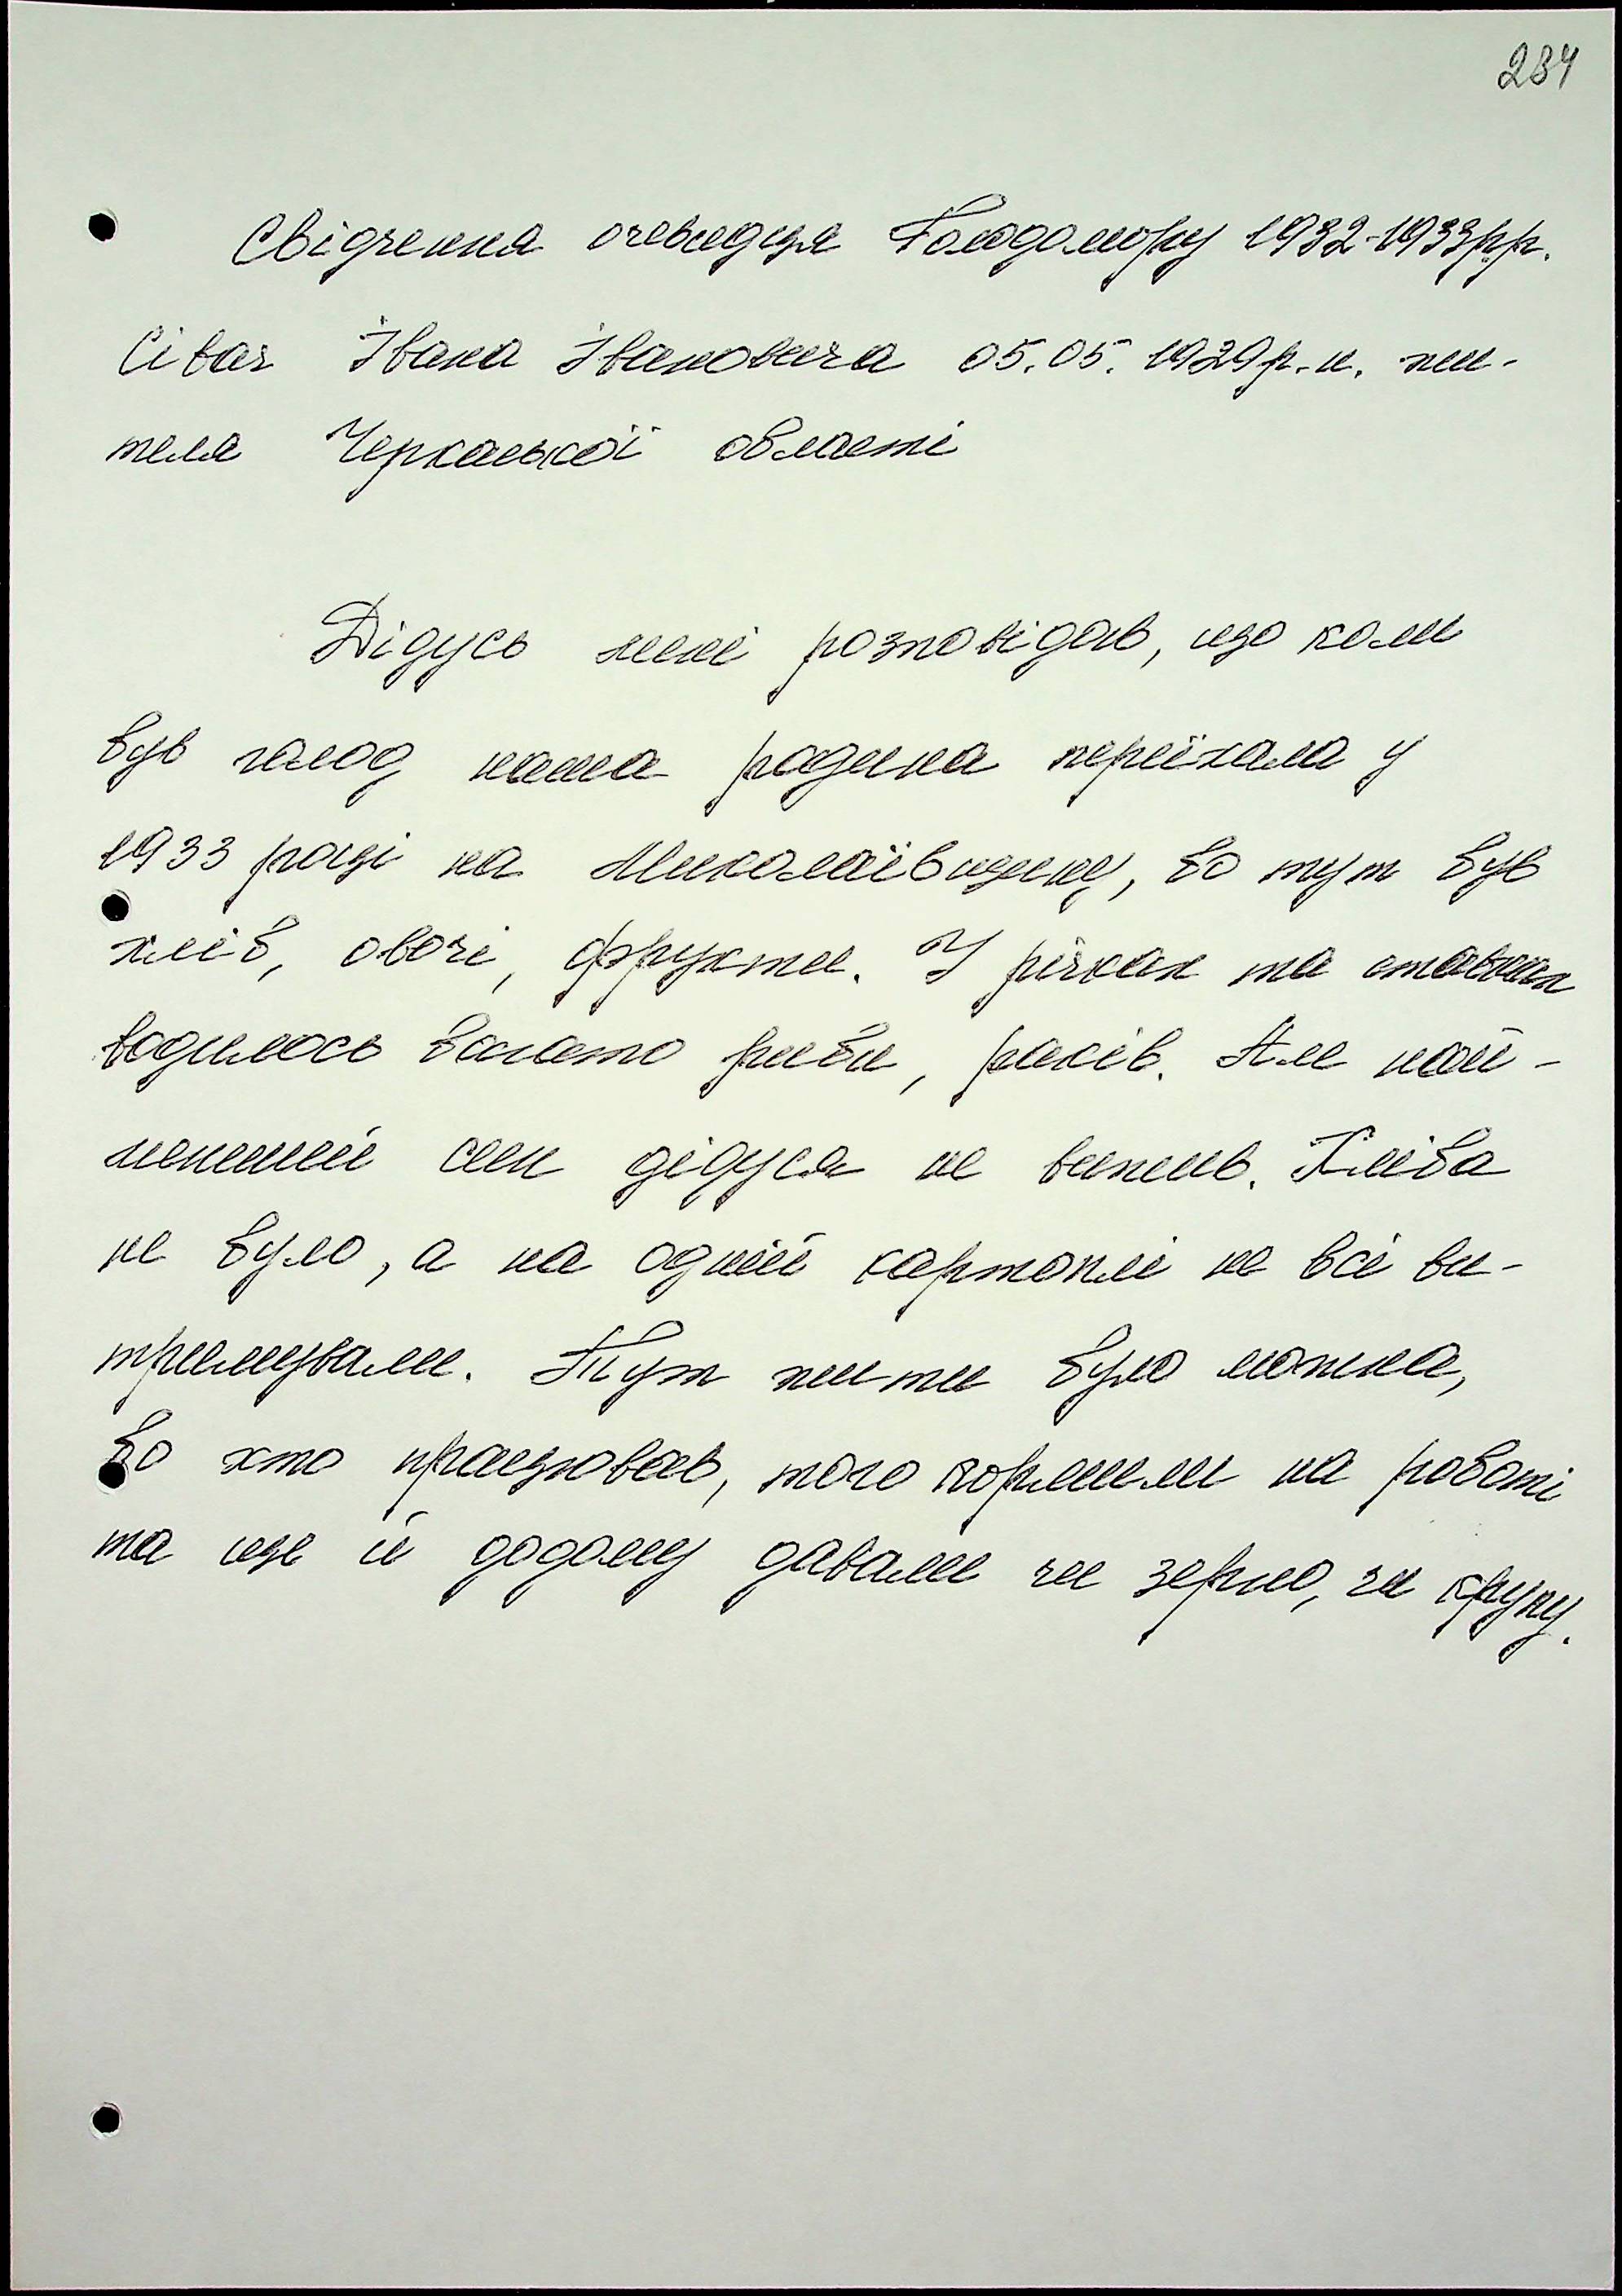 234
Свідчення очевидця Голодомору 1932-1933рр.
Сівач Івана Івановича 05.05.1929р.н. жи-
теля Черкаської області
Дідусь мені розповідав, що коли
був голод наша родина переїхала у
1933 році на Миколаївщину, бо тут був
хліб, овочі, фрукти. У річках та ставках
водилось багато риби, раків. Але най-
менший син дідуся не вижив. Хліба
не було, а на одній картоплі не всі ви-
тримували. Тут жити було можна,
бо хто працював, того кормили на роботі
та ще й додому давали чи зерно, чи крупу.